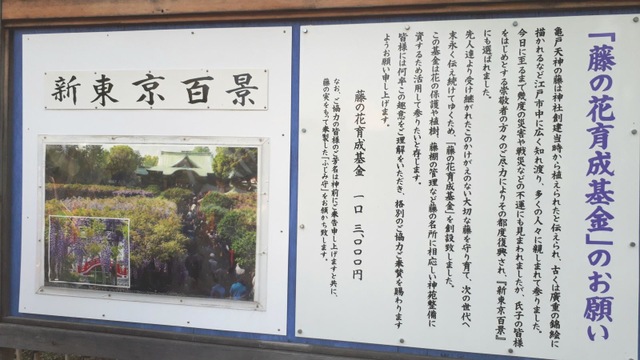 「藤の花育成基金」のお願い
亀戸天神の藤は神社創建当時から植えられたと伝えられ、古くは廣重の錦絵に
描かれるなど江戸市中に広く知れ渡り、多くの人々に親しまれて参りました。
今日に至るまで幾度の災害や戦災などの不運にも見まわれましたが、氏子の皆様
をはじめとする崇敬者の方々のご尽力によりその都度復興され、『新東京百景』
にも選ばれました。
先人達より受け継がれたこのかけがえのない大切な藤を守り育て、次の世代へ
末永く伝え続けてゆくため、『藤の花育成基金』を創設致しました。
この基金は花の保護や植樹、藤棚の管理など藤の名所に相応しい神苑整備に
資するため活用して参りたいと存じます。
皆様には何卒この趣意をご理解をいただき、格別のご協力ご奉賛を賜わります
ようお願い申し上げます。
藤の花育成基金 一口 三、〇〇〇円
なお、ご協力の皆様のご芳名は神前にご奉告申し上げますと共に、
藤の実をもって奉製した『ふじみ守』をお頒かち致します。
新東京百景